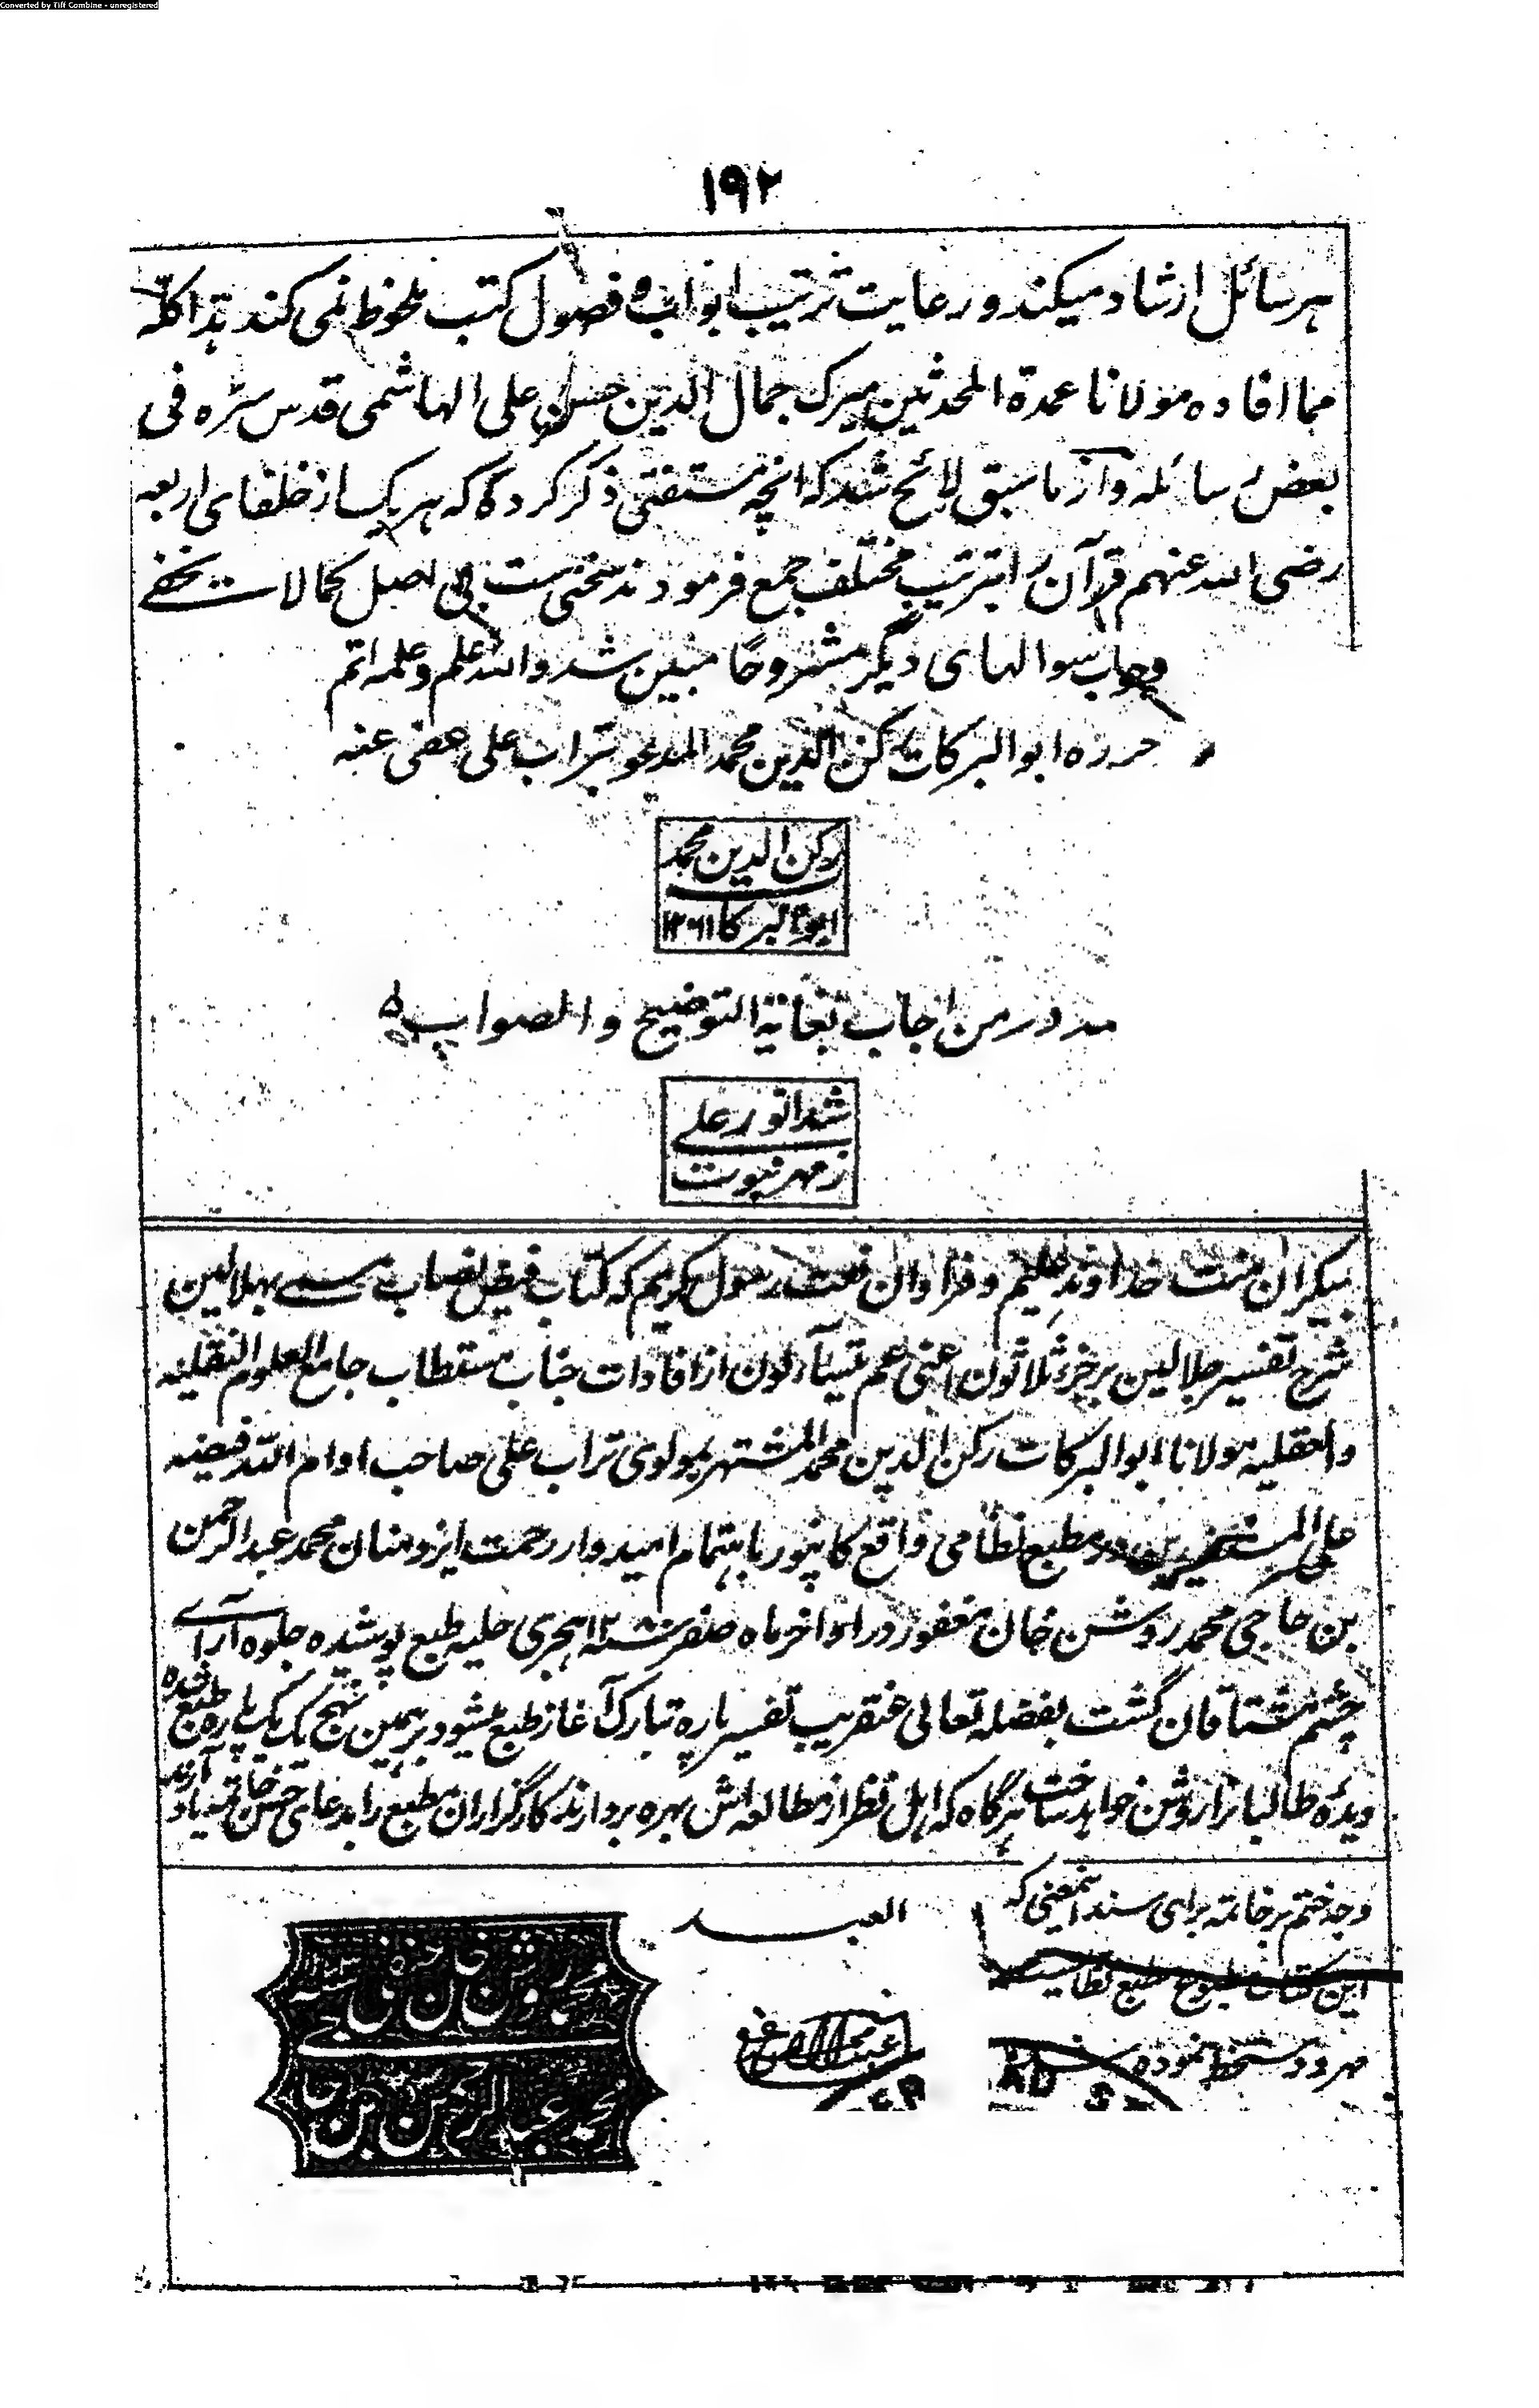 Converted by Tiff Combine - unregistered
۱۹۲
هر سائل ارشاد میکند و رعایت ترتیب ابواب و فصول کتب ملحوظ نمی کند هذا کلّه
مما افاده مولانا عمدة المحدثین میرک جمال الدین حسن علی الهاشمی قدس سرّه فی
بعض رسائله و از ما سبق لائح شد که انچه مستفتی ذکر کرد که هر یک از خلفای اربعه
رضی الله عنهم قرآن را بترتیب مختلف جمع فرمودند سخنی ست بی اصل کما لا یخفے
وجواب سوالهای دیگر مشروحا مبین شد والله اعلم وعلمه اتم
حرره ابو البرکات رکن الدین محمد المدعو بتراب علی عفی عنه
رکن الدین محمد
ابو البرکات ۱۲۶۱
لله در من اجاب بغایة التوضیح والصواب
شد انور علے
ز مهر نبوت
بیکران منت خداوند علیم و فراوان نعت رسول کریم که کتاب فیض نصاب مسمے بهلالین
شرح تفسیر جلالین بر جزء ثلاثون اعنی عم یتساءلون از افادات جناب مستطاب جامع العلوم النقلیه
والعقلیه مولانا ابو البرکات رکن الدین محمد المشتهر بمولوی تراب علی صاحب ادام الله فیضه
علی المستفیدین در مطبع نظامی واقع کانپور باهتمام امیدوار رحمت ایزد منان محمد عبد الرحمن
بن حاجی محمد روشن خان مغفور در اواخر ماه صفر سنه ۱۲۸ هجری حلیه طبع پوشیده جلوه آرای
چشم مشتاقان گشت بفضله تعالی عنقریب تفسیر پاره تبارک آغاز طبع میشود بر همین نهج یک یک پاره طبع شده
دیده طالبانرا روشن خواهد ساخت هر گاه که اهل نظر از مطالعه اش بهره بردارند کارگزاران مطبع را بدعای حسن خاتمه یاد آرند
وجه ختم بر خاتمه برای سند اینمعنی که
این کتاب مطبوع مطبع نظامیست
مهر و دستخط نموده شد
العبد
محمد روشن خان
محمد عبد الرحمن بن حاجی